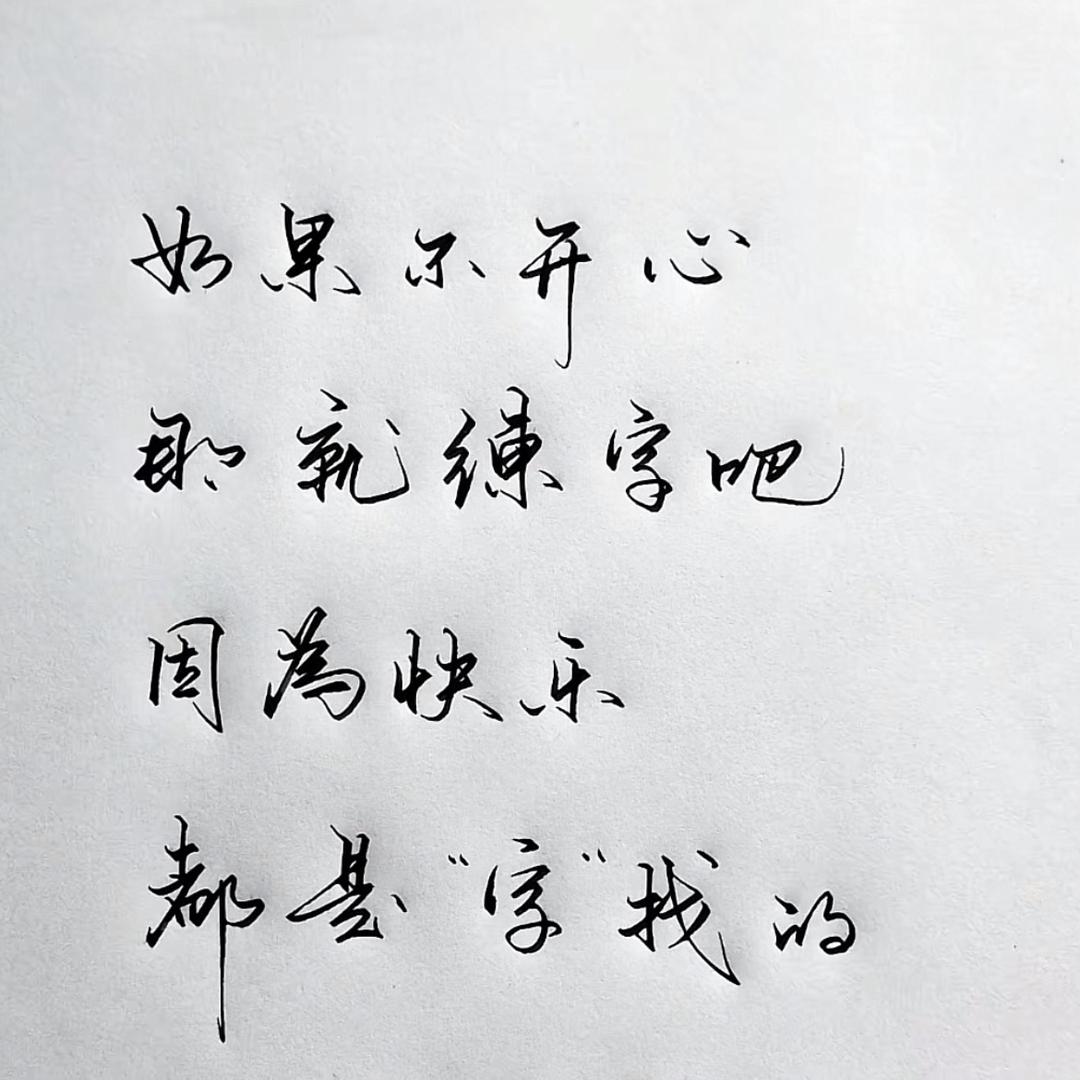 如果不开心
那就練字吧
因為快乐
都是“字”找的